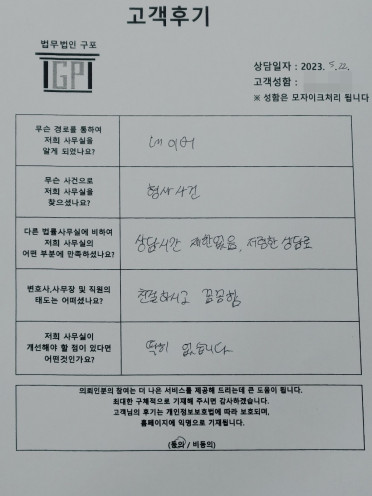 고객후기
법무법인 구포
IGPI
상담일자 : 2023. 5. 22.
고객성함 :
※ 성함은 모자이크처리 됩니다
무슨 경로를 통하여
저희 사무실을
알게 되었나요?
네이버
무슨 사건으로
저희 사무실을
찾으셨나요?
형사사건
다른 법률사무실에 비하여
저희 사무실의
어떤 부분에 만족하셨나요?
상담시간 제한없음, 저렴한 상담료
변호사,사무장 및 직원의
태도는 어떠셨나요?
친절하시고 꼼꼼함
저희 사무실이
개선해야 할 점이 있다면
어떤것인가요?
딱히 없습니다
의뢰인분의 참여는 더 나은 서비스를 제공해 드리는데 큰 도움이 됩니다.
최대한 구체적으로 기재해 주시면 감사하겠습니다.
고객님의 후기는 개인정보보호법에 따라 보호되며,
홈페이지에 익명으로 기재됩니다.
(동의 / 비동의)